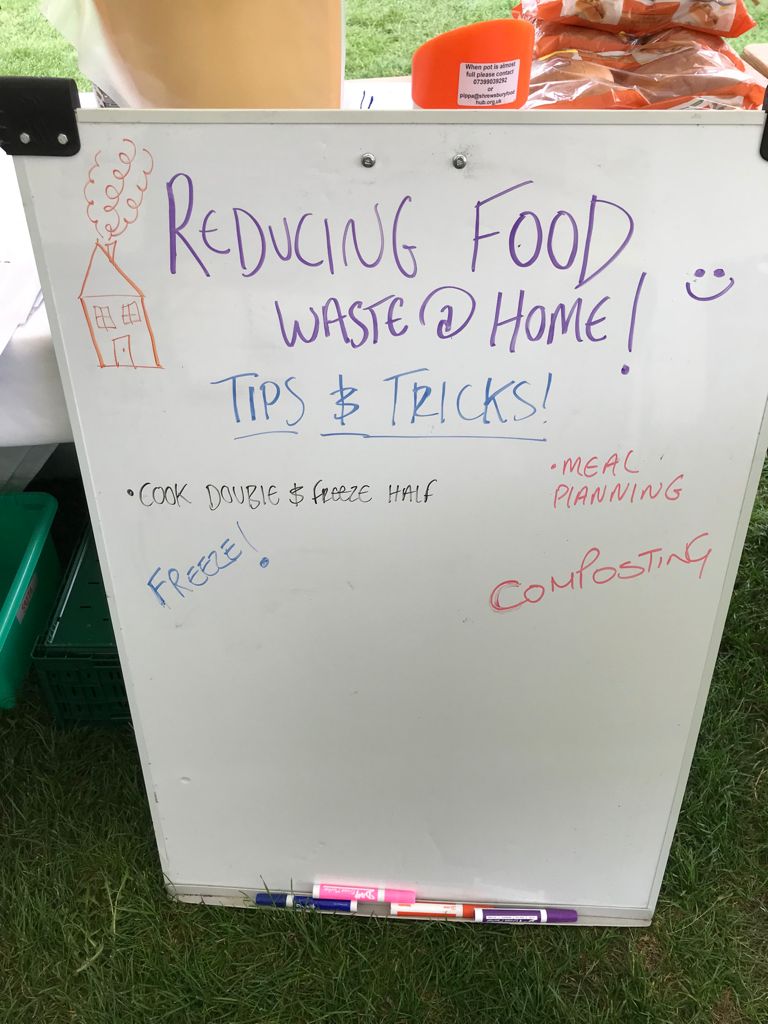 When pot is almost
full please contact
07399039292
or
pippa@shrewsburyfood
hub.org.uk
REDUCING FOOD
WASTE @ HOME!
TIPS & TRICKS!
• COOK DOUBLE & FREEZE HALF
• MEAL
PLANNING
FREEZE!
COMPOSTING